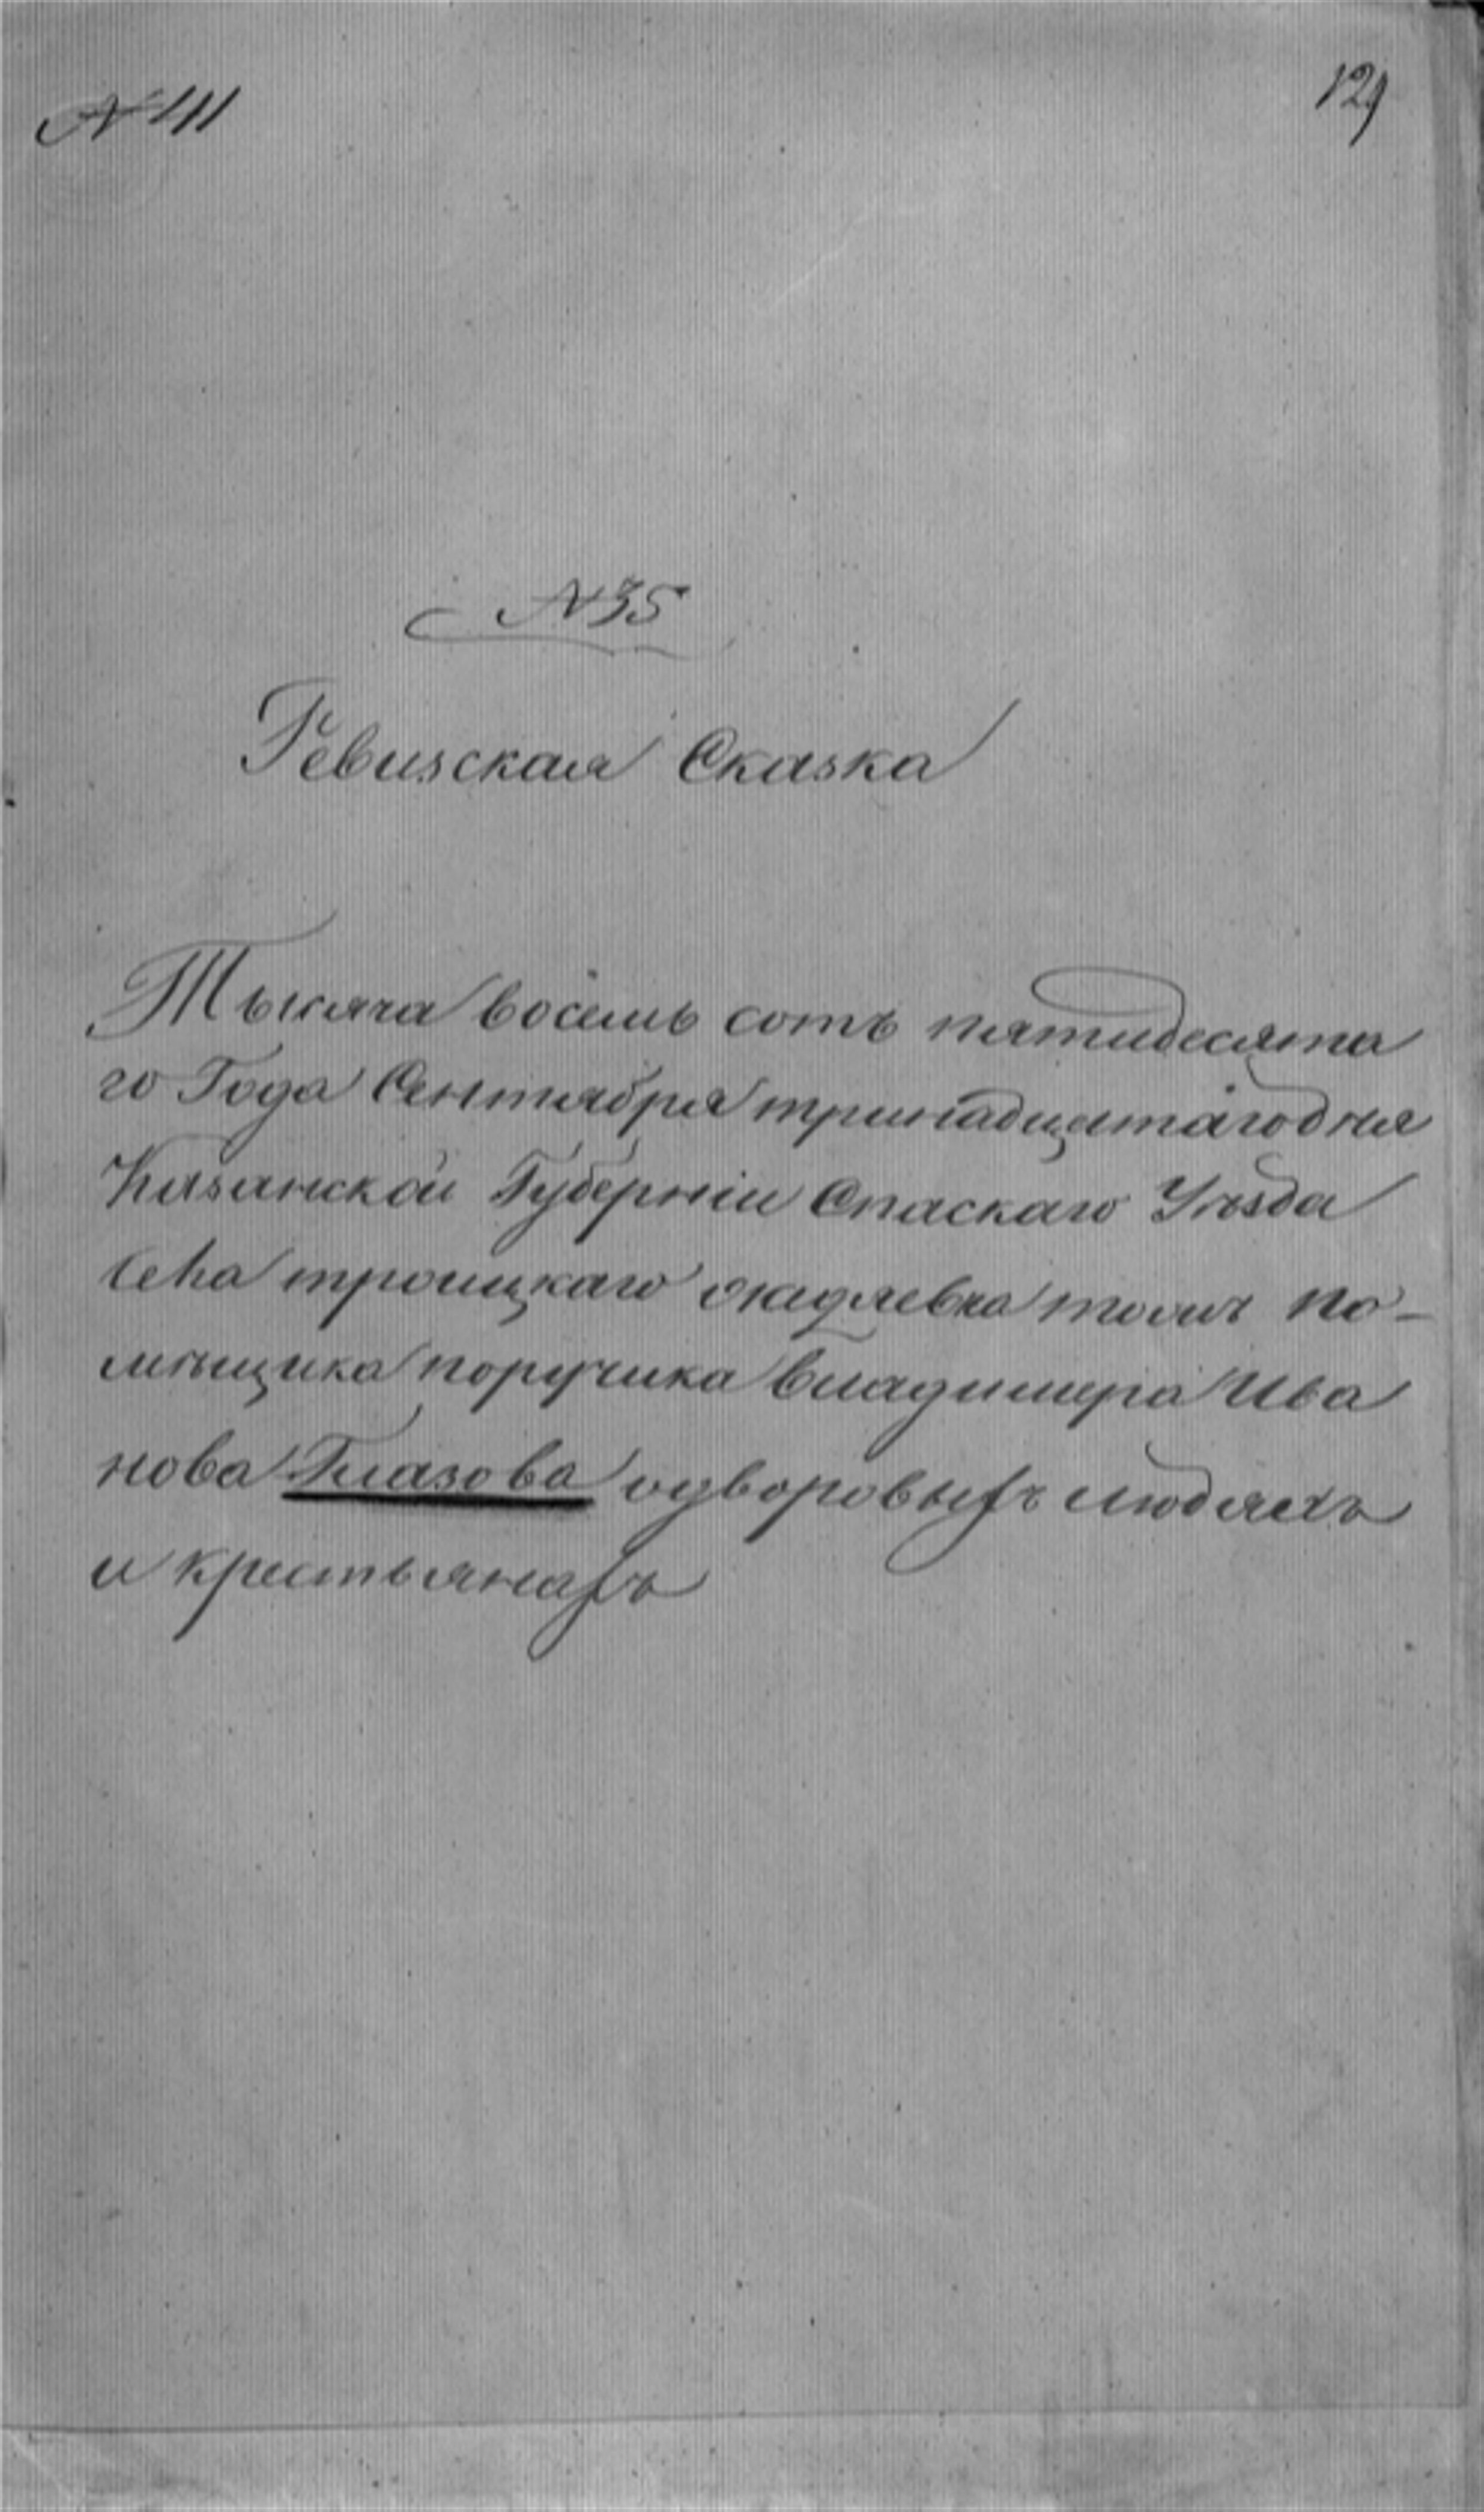 № 411
129
№ 35
Ревизская Сказка
Тысяча восемь сотъ пятидесята
го Года Сентября тринадцатаго дня
Казанской Губерніи Спаскаго Уѣзда
Села троицкаго тожъ по-
мѣщика поручика владимера Ива
нова Глазова о дворовыхъ людяхъ
и крестьянахъ